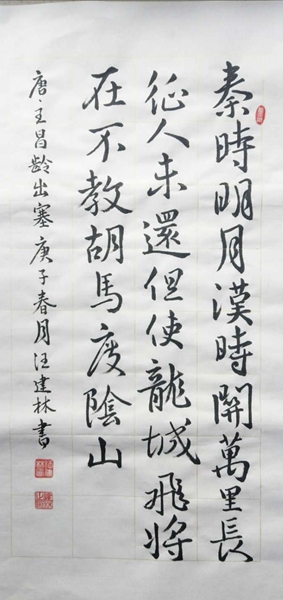 秦時明月漢時關萬里長
征人未還但使龍城飛將
在不教胡馬度陰山
唐·王昌齡出塞庚子春月汪建林書